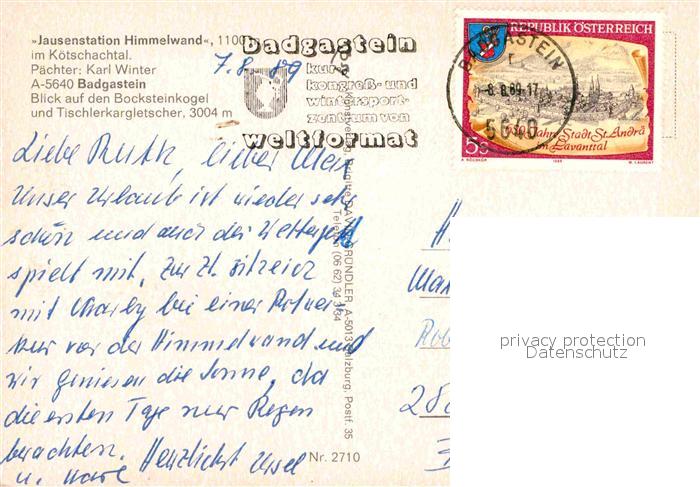 »Jausenstation Himmelwand«, 1100
im Kötschachtal.
Pächter: Karl Winter
A-5640 Badgastein
Blick auf den Bocksteinkogel
und Tischlerkargletscher, 3004 m
7.8.89
badgastein
kur-
kongreß- und
wintersport-
zentrum von
weltformat
REPUBLIK ÖSTERREICH
BADGASTEIN
-8.8.89-17
5640
650 Jahre Stadt St. Andrä
im Lavanttal
5S
1989
W. LAURENT
Liebe Ruth, lieber Max
Unser Urlaub ist wieder sehr
schön und auch der Wettergott
spielt mit. Zur Zt. sitze ich
mit Charly bei einer
vor der Himmelwand und
wir geniesen die Sonne, da
die ersten Tage nur Regen
brachten. Herzlichst Ursel
u.
Brigitte DAVID-GRÜNDLER, A-5013 Salzburg, Postf. 35
Telefon (06 62)
Nr. 2710
privacy protection
Datenschutz